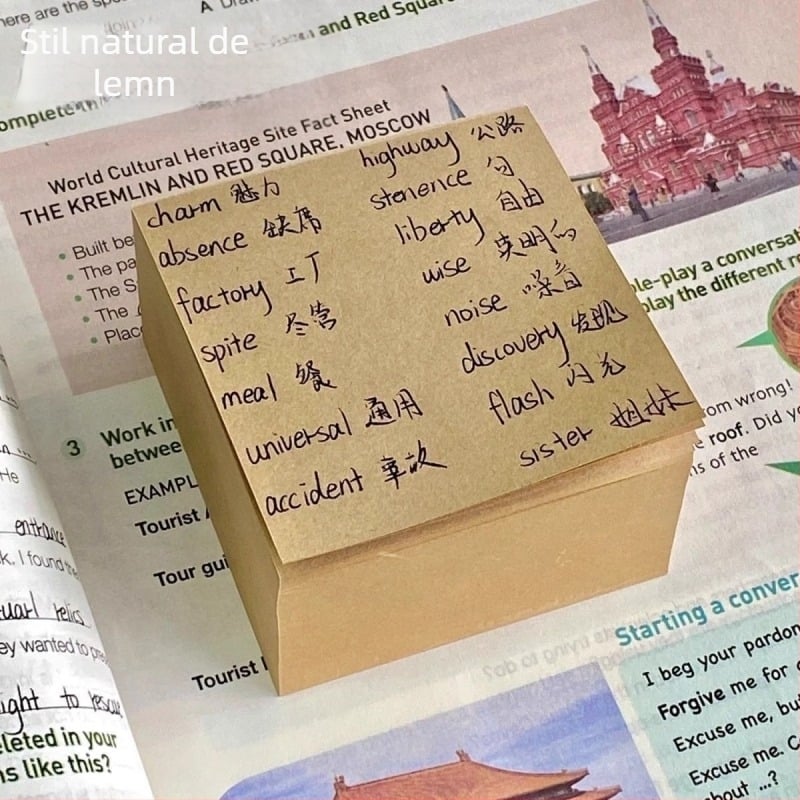 here are the
and Red Square
Stil natural de
lemn
omplete
World Cultural Heritage Site Fact Sheet
THE KREMLIN AND RED SQUARE, MOSCOW
• Built be
• The pa
• The S
• The
• Plac
charm 魅力
absence 缺席
factory 工厂
spite 尽管
meal 餐
universal 通用
accident 事故
highway 公路
stenence 句
liberty 自由
wise 英明的
noise 噪音
discovery 发现
flash 闪光
sister 姐妹
le-play a conversati
play the different ro
om wrong!
roof. Did yo
ns of the
3 Work in
betwee
EXAMPL
Tourist
Tour gui
Tourist
He
entrance
k. I found the
relics
ey wanted to pre
ight to rescue
eleted in your
ns like this?
Starting a conver
I beg your pardon
Forgive me for
Excuse me, bu
Excuse me. C
bout ...?